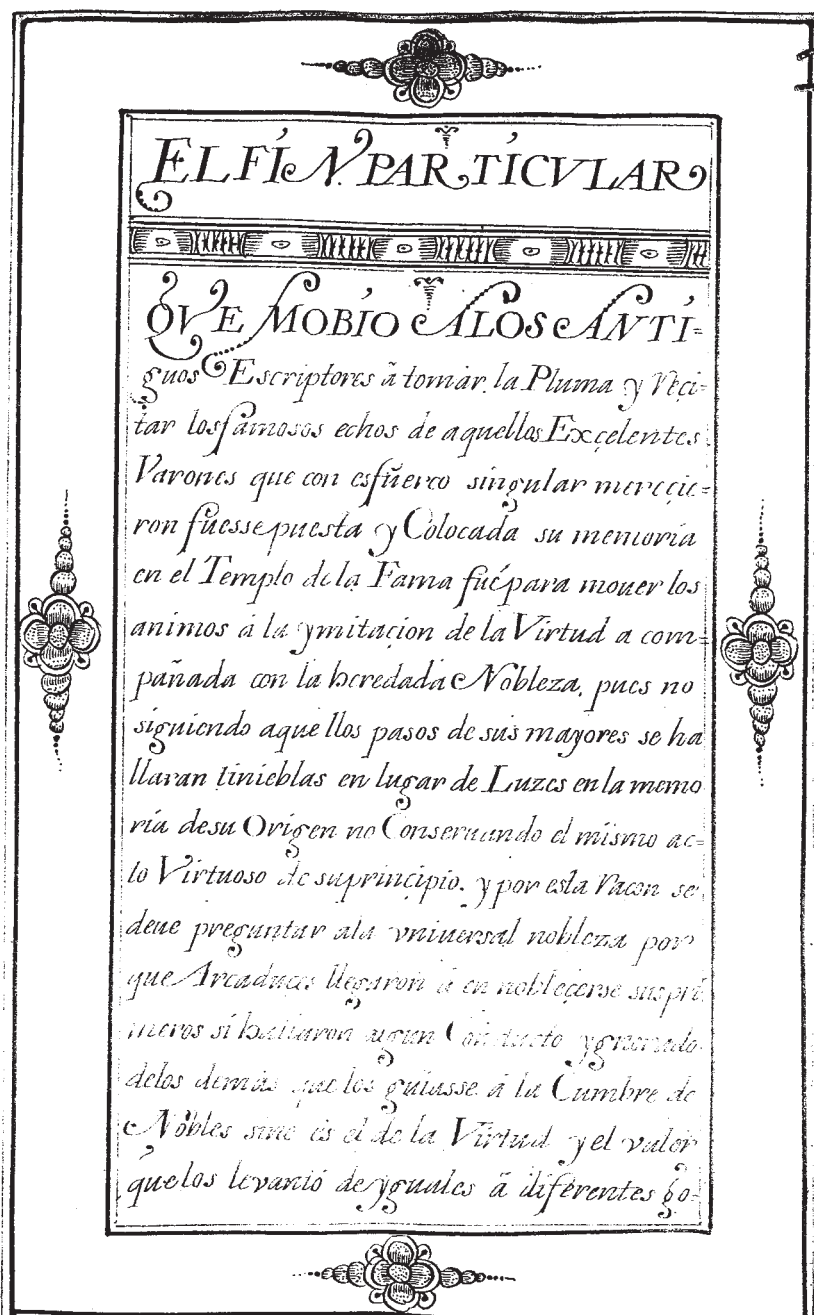 EL FÍN. PARTÍCVLAR
QVE MOBÍO A LOS ANTÍ-
guos Escriptores â tomar. la Pluma y Reçi-
tar los famosos echos de aquellos Exçelentes
Varones que con esfuerco singular mereçie-
ron fuesse puesta y Colocada su memoría
en el Templo de la Fama fué para mouer los
animos á la ymitaçion de la Virtud a com-
pañada con la heredada Nobleza, pues no
siguiendo aquellos pasos de sus mayores se ha
llaran tinieblas en lugar de Luzes en la memo
ría de su Orígen no Conseruando el mismo ac-
to Virtuoso de su prinçipio. y por esta Racon se
deue preguntar a la vniuersal nobleza por
que Arcaduces llegaron á en nobleçerse sus pri
meros sí hallaron algun Conducto ygnorado
de los demás que los guiasse á la Cumbre de
Nobles sino es el de la Virtud y el valor
que los levantó de yguales â diferentes go-